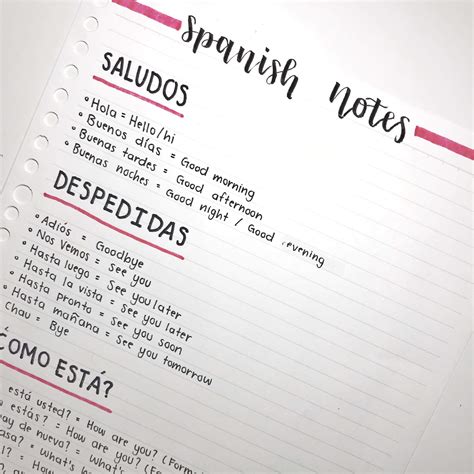 Spanish Notes
SALUDOS
• Hola = Hello/hi
• Buenos días = Good morning
• Buenas tardes = Good afternoon
• Buenas noches = Good night / Good evening
DESPEDIDAS
• Adiós = Goodbye
• Nos Vemos = See you
• Hasta luego = See you later
• Hasta la vista = See you later
• Hasta pronto = See you soon
• Hasta mañana = See you tomorrow
Chau = Bye
CÓMO ESTÁ?
está usted? = How are you? (Formal
estás? = How are you? (
ay de nuevo? = What's
asa? = What's